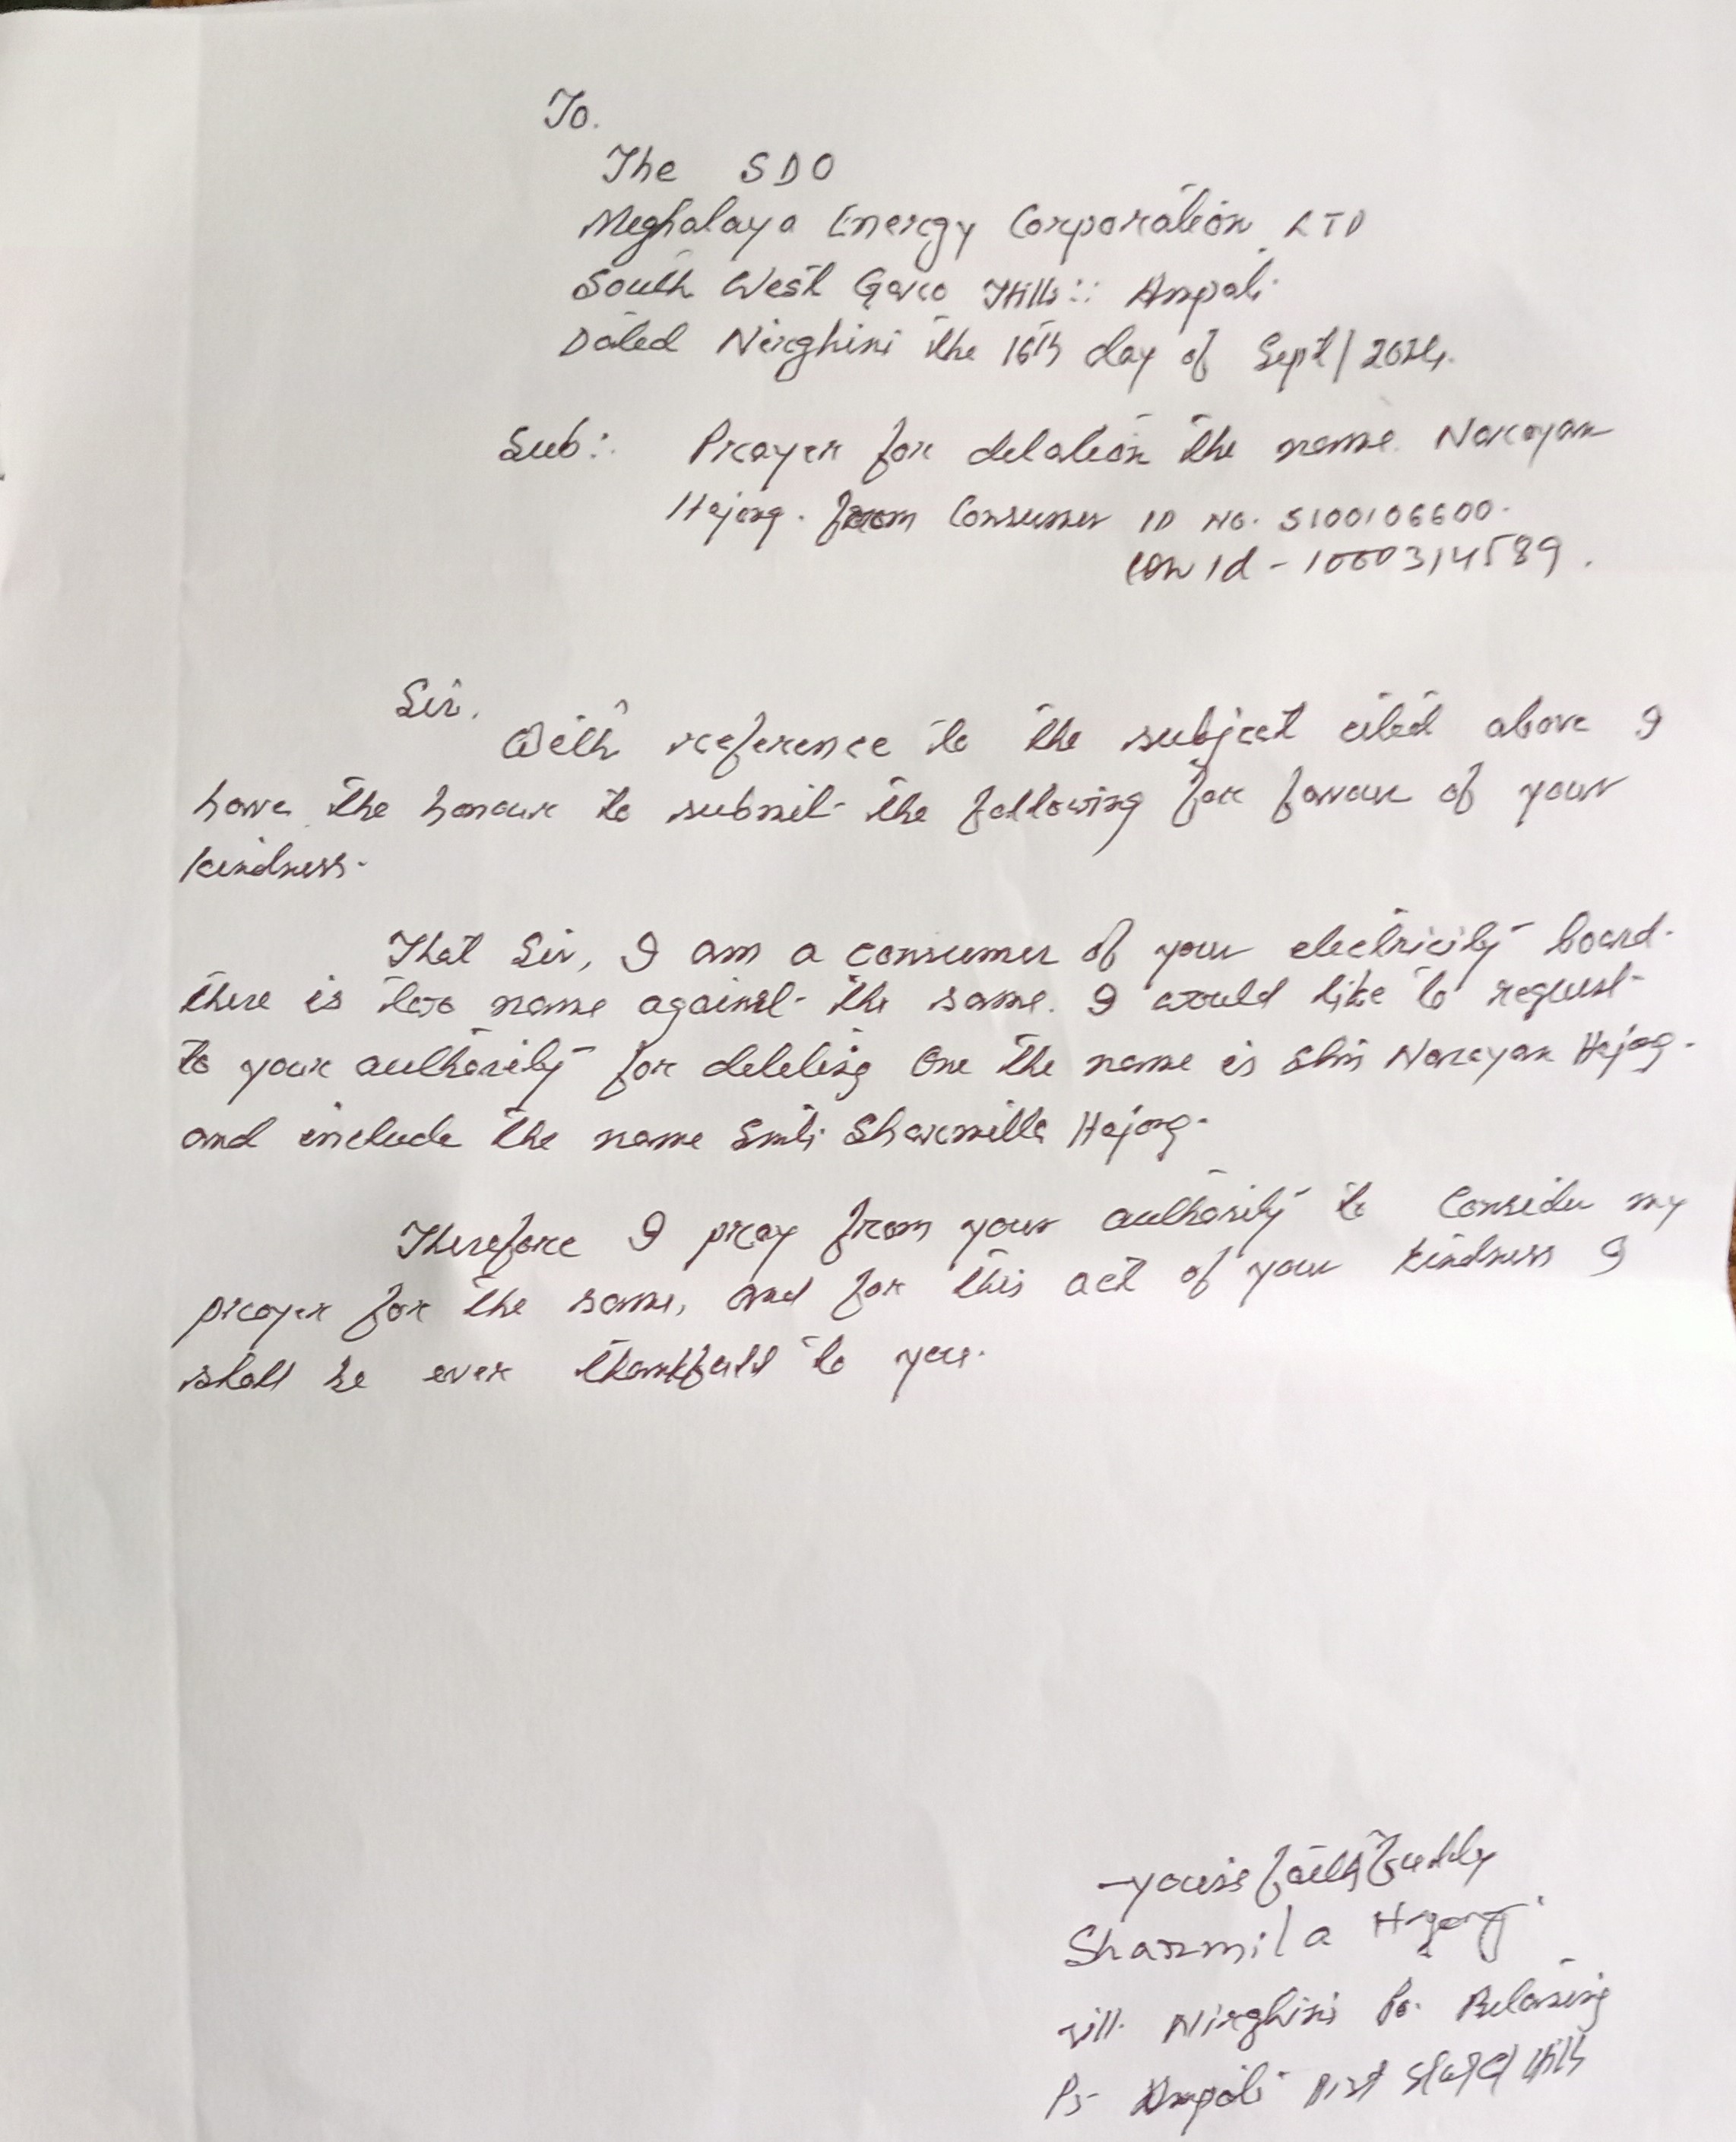 To.
The SDO
Meghalaya Energy Corporation LTD
South West Garo Hills:: Ampati
Dated Nirghini the 16th day of Sept/2024.
Sub:. Prayer for delation the name Narayan
Hajong. from Consumer ID No. 5100106600.
Con Id - 1000314589.
Sir.
With reference to the subject cited above I
have the honour to submit the following for favour of your
kindness.
That Sir, I am a consumer of your electricity board.
there is two name against the same. I would like to request
to your authority for deleting one the name is Shri Narayan Hajong.
and include the name Smti Sharmilla Hajong.
Therefore I pray from your authority to consider my
prayer for the same, and for this act of your kindness I
shall be ever thankfull to you.
yours faithfully
Sharmila Hajong
vill. Nirghini Po.
Ps- Ampati Dist Hills